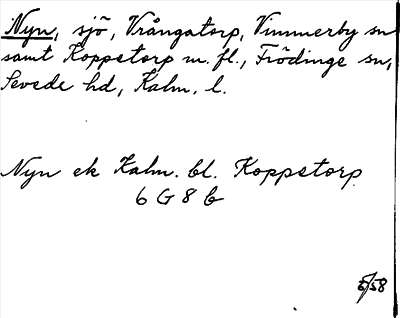 Nyn, sjö, Vrångatorp, Vimmerby sn
samt Koppetorp m. fl., Frödinge sn,
Sevede hd, Kalm. l.
Nyn ek Kalm. bl. Koppetorp
6 G 8 b
5/58